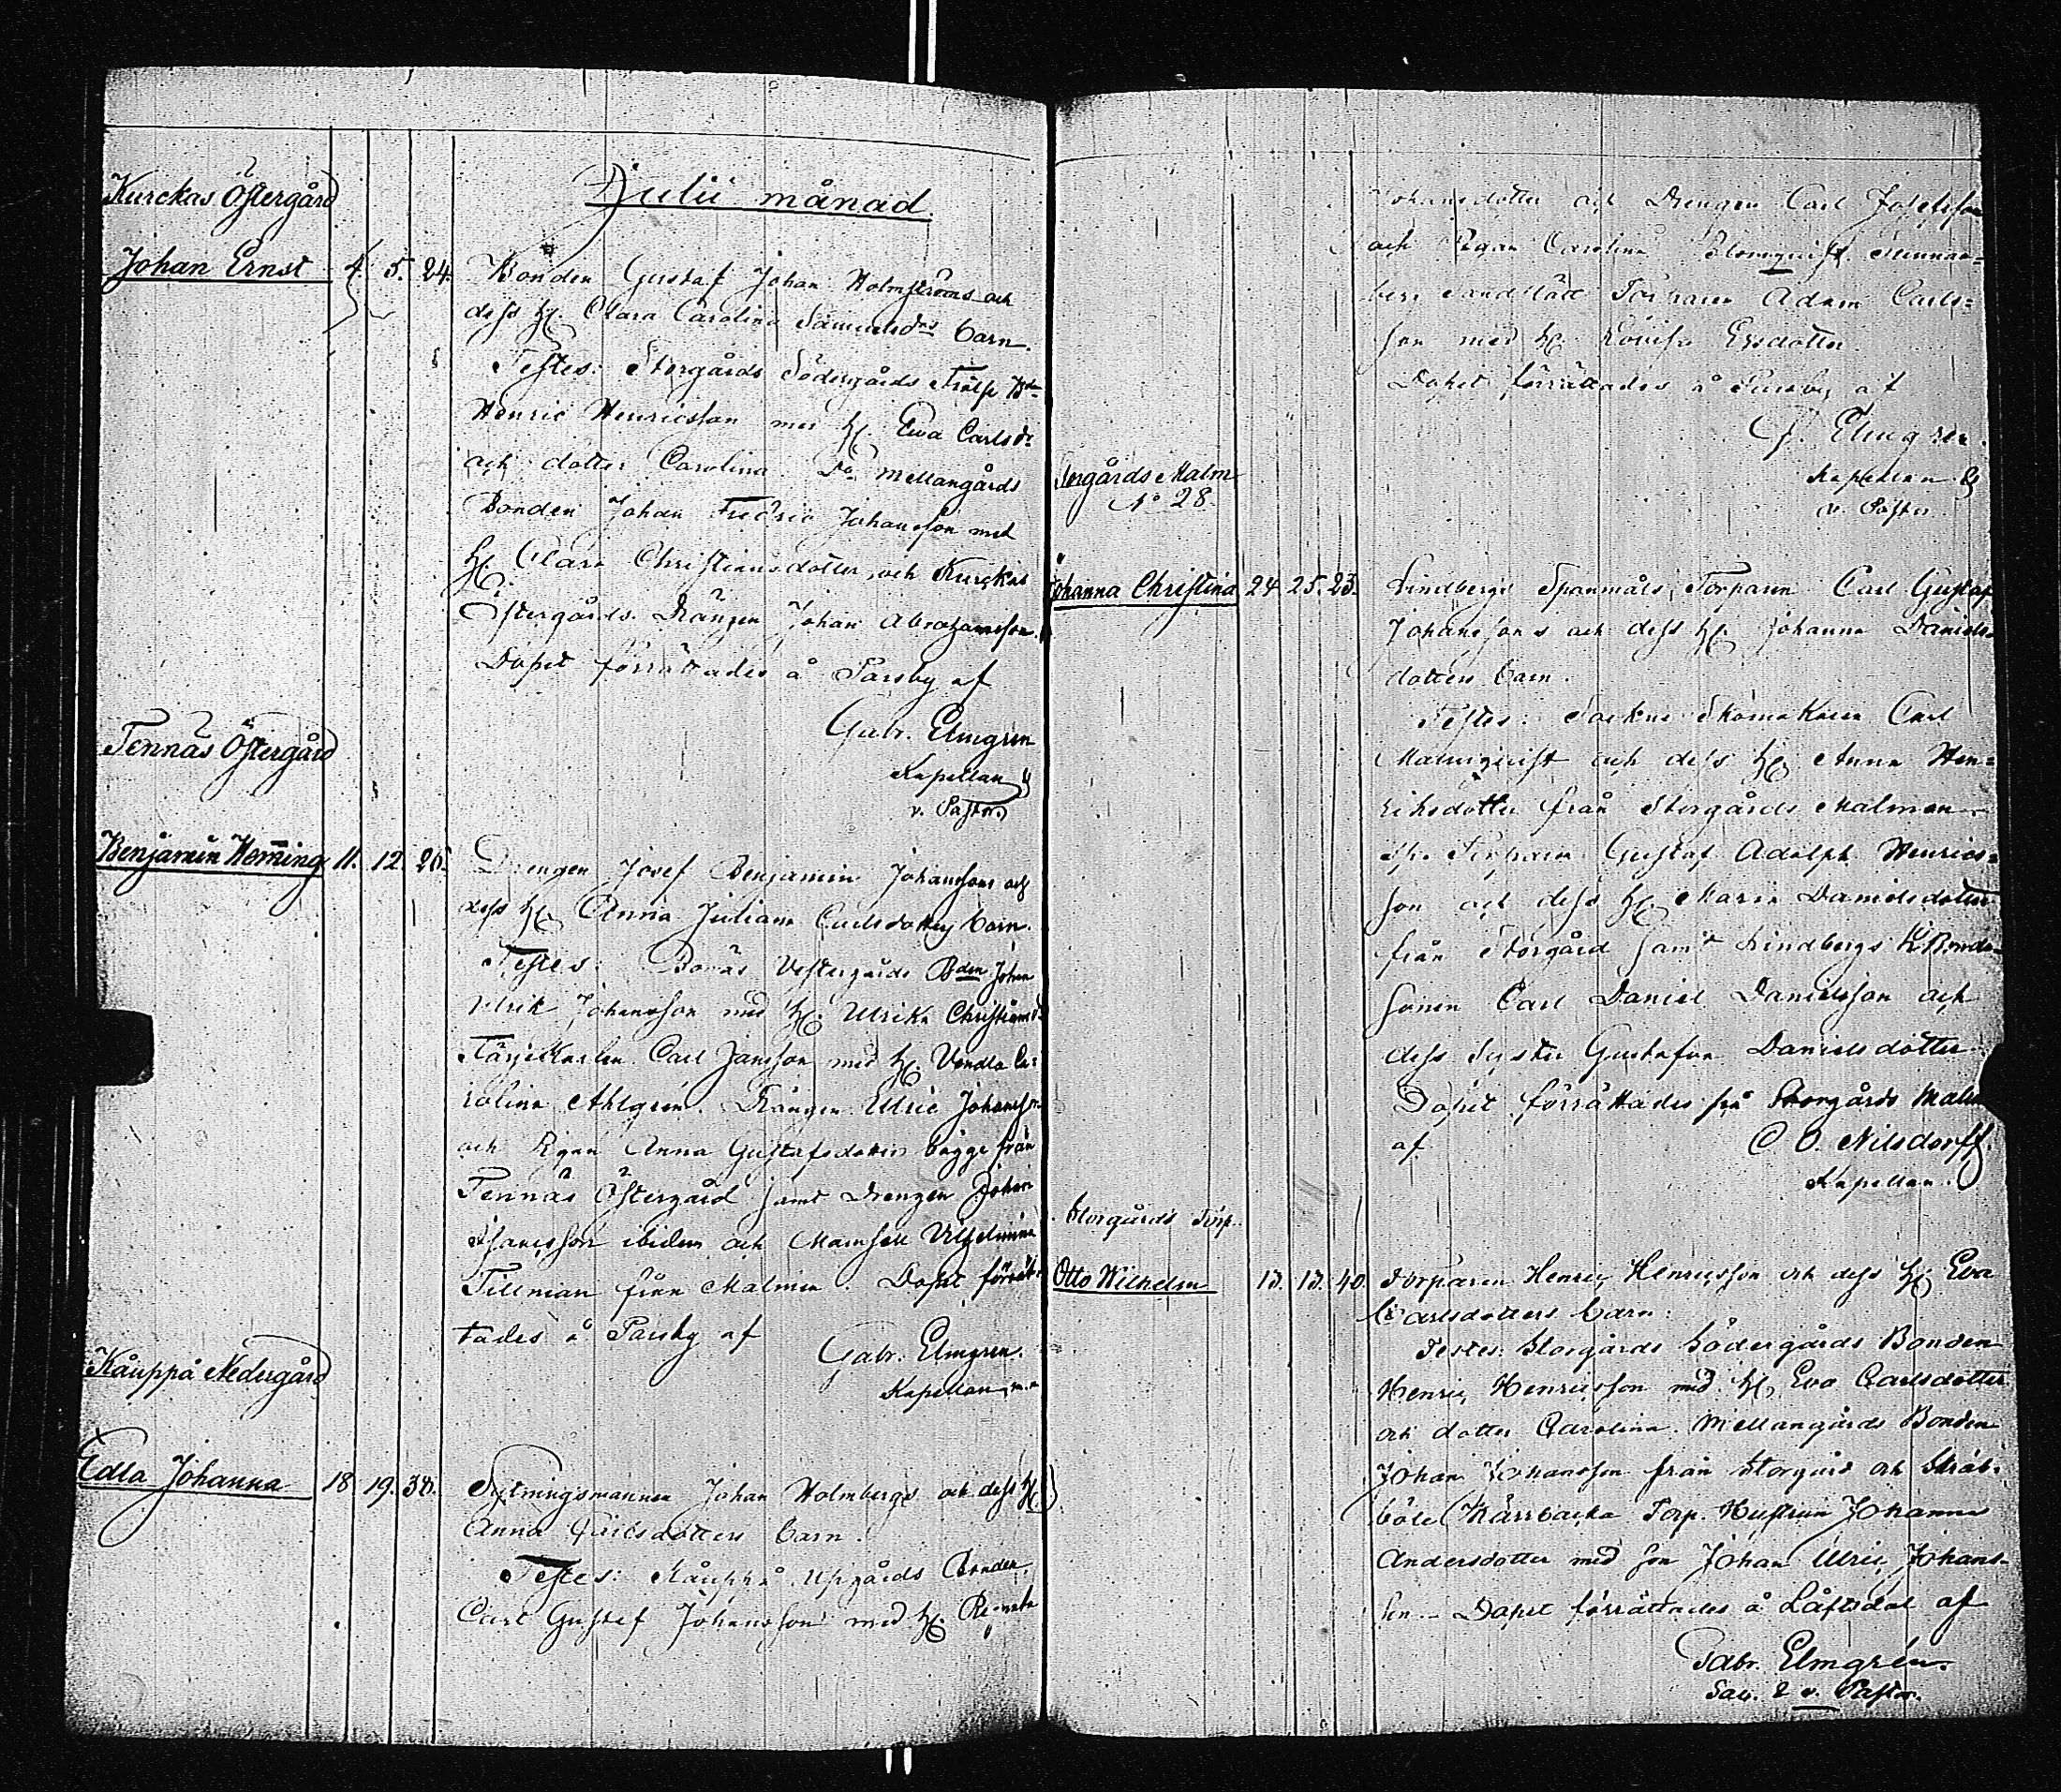 Kurckas Östergård
Julii månad.
Johan Ernst 4. 5. 24. Bonden Gustaf Johan Holmströms och
dess H. Clara Carolina Samuelsdrs barn.
Testes: Storgårds Södergårds
Henric Henricsson med H. Eva Carlsdr
och dotter Carolina. Do Mellangårds
Bonden Johan Fredric Johansson med
H. Clara Christiansdotter, och Kurckas
Östergårds Drängen Johan Abrahamsson.
Dopet förrättades å Parsby af
Gabr. Elmgren
Kapellan
v. Pastor
Tennäs Östergård
Benjamin Heming 11. 12. 26. Drengen Josef Benjamin Johanssons och
dess H. Anna Juliana Carlsdotters barn.
Testes: Bonäs Vestergårds Bden Johan
Ulrik Johansson med H. Ulrika Christiansdr
Färjekarlen Carl Jansson med H. Vendla Ca=
rolina Ahlgren. Drängen Ulric Johansson
och Pigan Anna Gustafsdotter bägge från
Tennäs Östergård samt Drengen Johan
Isaksson ibidem och Mamsell Vilhelmina
Tillman från Malmen. Dopet förrät=
tades å Parsby af
Gabr. Elmgren.
Kapellan
Kåuppå Nedergård
Edla Johanna 18 19. 38. Sytningsmannen Johan Holmbergs och dess H.
Anna Carlsdotters barn.
Testes: Kåuppå Uppgårds Bonden
Carl Gustaf Johansson med H. Renata
Johansdotter och Drengen Carl Josefsson
och Pigan Carolina Blomqvist.
Torparen Adam Carls=
son med H. Lovisa Ersdotter.
Dopet förrättades å Parsby af
G. Elmgren.
Kapellan &
v. Pastor
Storgårds Malm
No 28.
Johanna Christina 24 25. 23. Lindbergs Spanmåls Torparen Carl Gustaf
Johanssons och dess H. Johanna Daniels=
dotters barn.
Testes: Socknes Skomakaren Carl
Malmqvist och dess H. Anna Hen=
riksdotter från Storgårds Malmen
Torparen Gustaf Adolph Henrics=
son och dess H. Maria Danielsdotter
från Storgård samt Lindbergs Bonde=
sonen Carl Daniel Danielsson och
dess syster Gustafva Danielsdotter.
Dopet förrättades på Storgårds Malm
af C. O. Nilsdorff.
Kapellan.
Storgårds Torp.
Otto Wilhelm 13. 13. 40. Torparen Henric Henricsson och dess H. Eva
Carlsdotters barn:
Testes: Storgårds Södergårds Bonden
Henric Henricsson med H. Eva Carlsdotter
och dotter Carolina. Mellangårds Bonden
Johan Johansson från Storgård och Skräb=
böle Kärrbacka Torp. Hustrun Johanna
Andersdotter med son Johan Ulric Johans=
son. Dopet förrättades å Låftsdal af
Gabr. Elmgrén.
Sac. & v. Pastor.